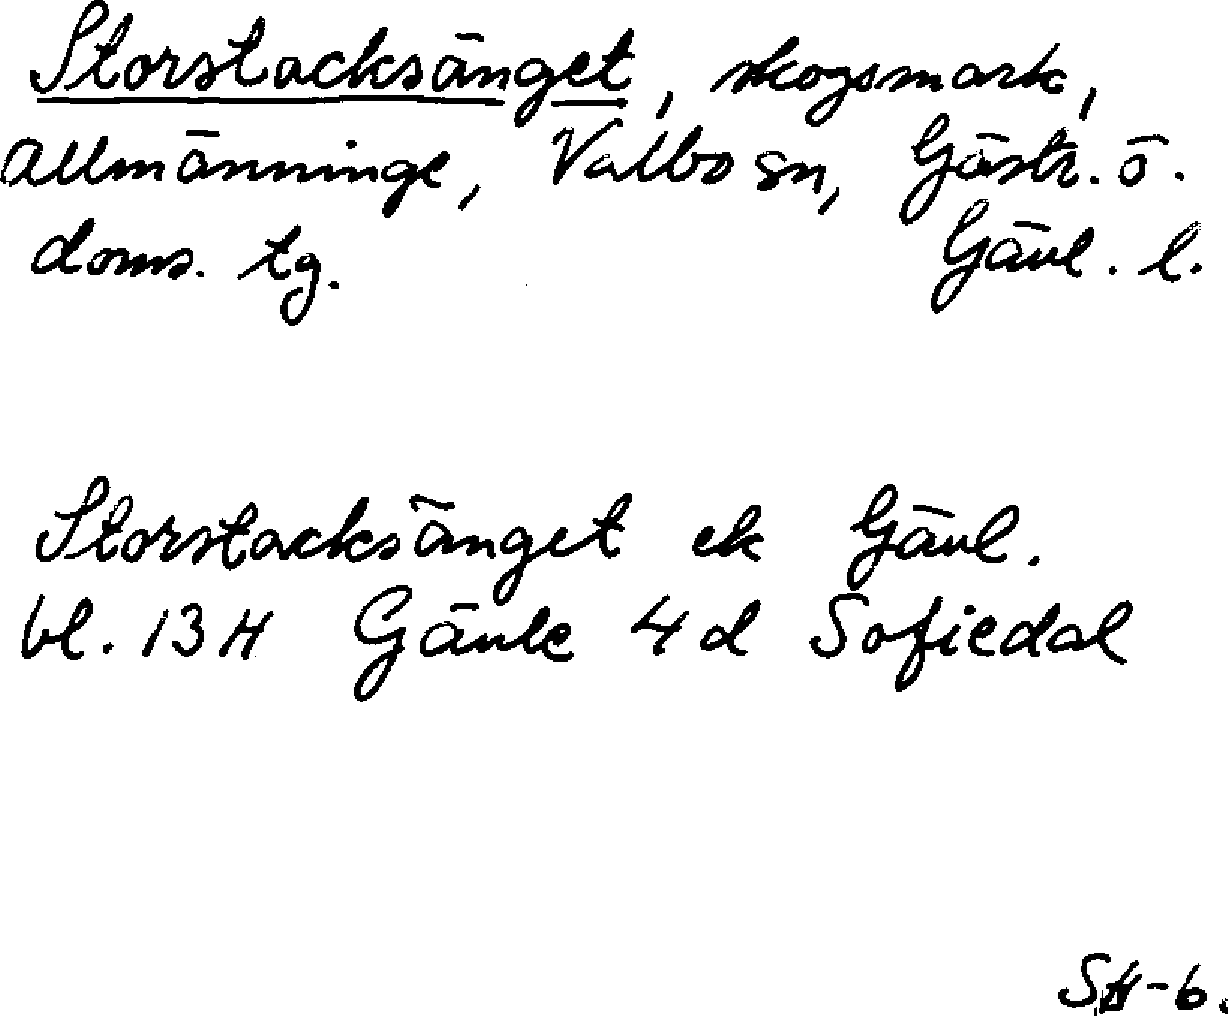 Storstacksänget, skogsmark,
allmänninge, Valbo sn, Gästr. ö.
doms. tg. Gävl. l.
Storstacksänget ek Gävl.
bl. 13 H Gävle 4 d Sofiedal